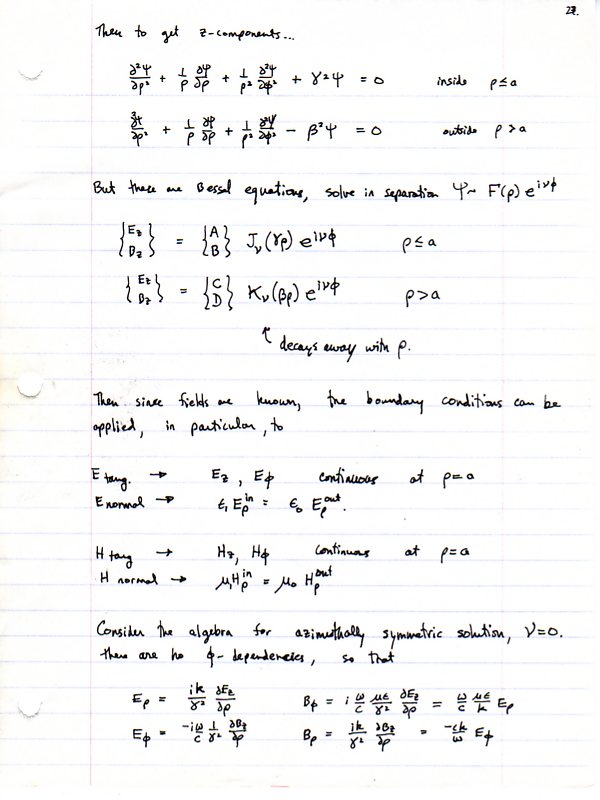 27.
Then to get z-components...
∂²Ψ/∂ρ² + 1/ρ ∂Ψ/∂ρ + 1/ρ² ∂²Ψ/∂φ² + γ²Ψ = 0 inside ρ ≤ a
∂²Ψ/∂ρ² + 1/ρ ∂Ψ/∂ρ + 1/ρ² ∂²Ψ/∂φ² − β²Ψ = 0 outside ρ > a
But these are Bessel equations, solve in separation Ψ ~ F(ρ) e^{iνφ}
{Ez Bz} = {A B} J_ν(γρ) e^{iνφ} ρ ≤ a
{Ez Bz} = {C D} K_ν(βρ) e^{iνφ} ρ > a
↑ decays away with ρ.
Then since fields are known, the boundary conditions can be
applied, in particular, to
E tang. → Ez, Eφ continuous at ρ = a
E normal → ε₁ Eρ^in = ε₀ Eρ^out.
H tang → Hz, Hφ continuous at ρ = a
H normal → μ₁Hρ^in = μ₀ Hρ^out
Consider the algebra for azimuthally symmetric solution, ν = 0.
there are no φ-dependencies, so that
Eρ = ik/γ² ∂Ez/∂ρ Bφ = i ω/c με/γ² ∂Ez/∂ρ = ω/c με/k Eρ
Eφ = −iω/c 1/γ² ∂Bz/∂ρ Bρ = ik/γ² ∂Bz/∂ρ = −ck/ω Eφ